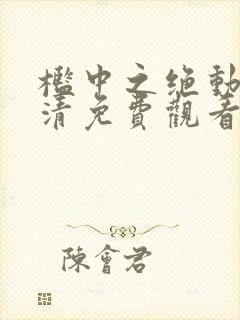 槛中之绝動
清免費觀看
陳會君